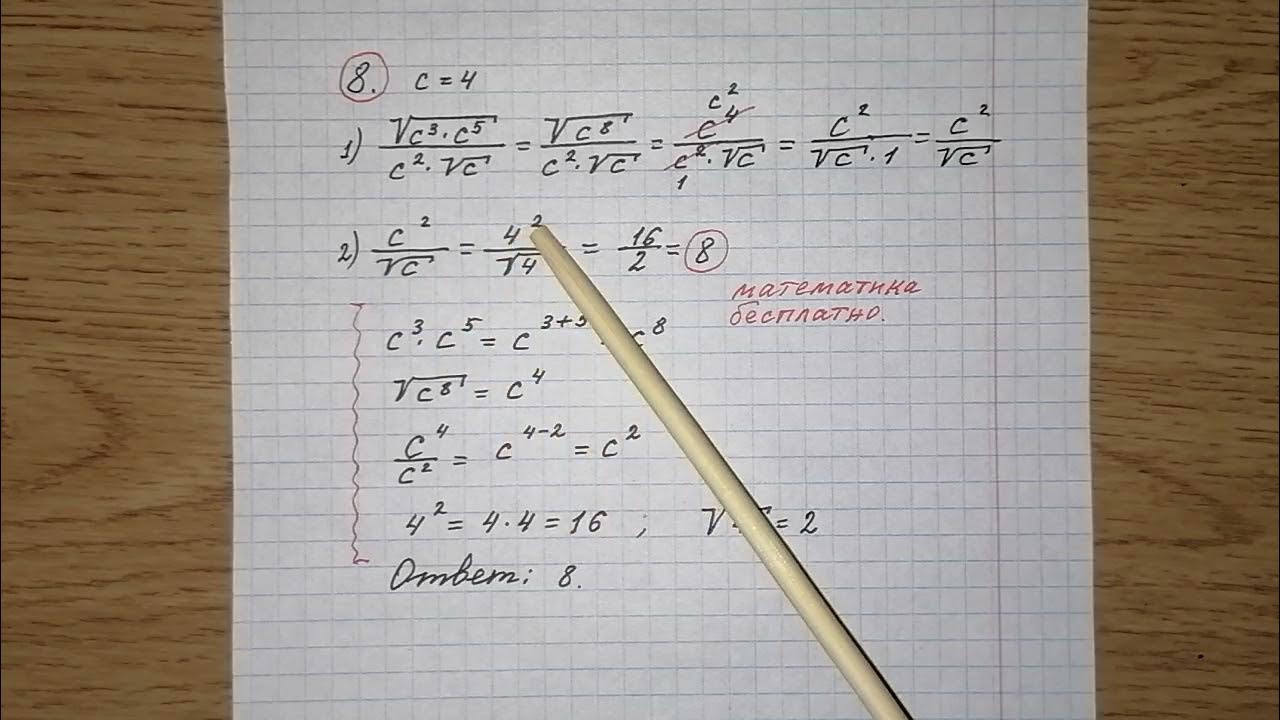 8. c = 4
1) √(c³·c⁵)/(c²·√c) = √(c⁸)/(c²·√c) = c⁴/(c²·√c) c² 1 = c²/(√c·1) = c²/√c
2) c²/√c = 4²/√4 = 16/2 = 8
математика
бесплатно.
c³·c⁵ = c³⁺ c⁸
√(c⁸) = c⁴
c⁴/c² = c⁴⁻² = c²
4² = 4·4 = 16 ; √ = 2
Ответ: 8.